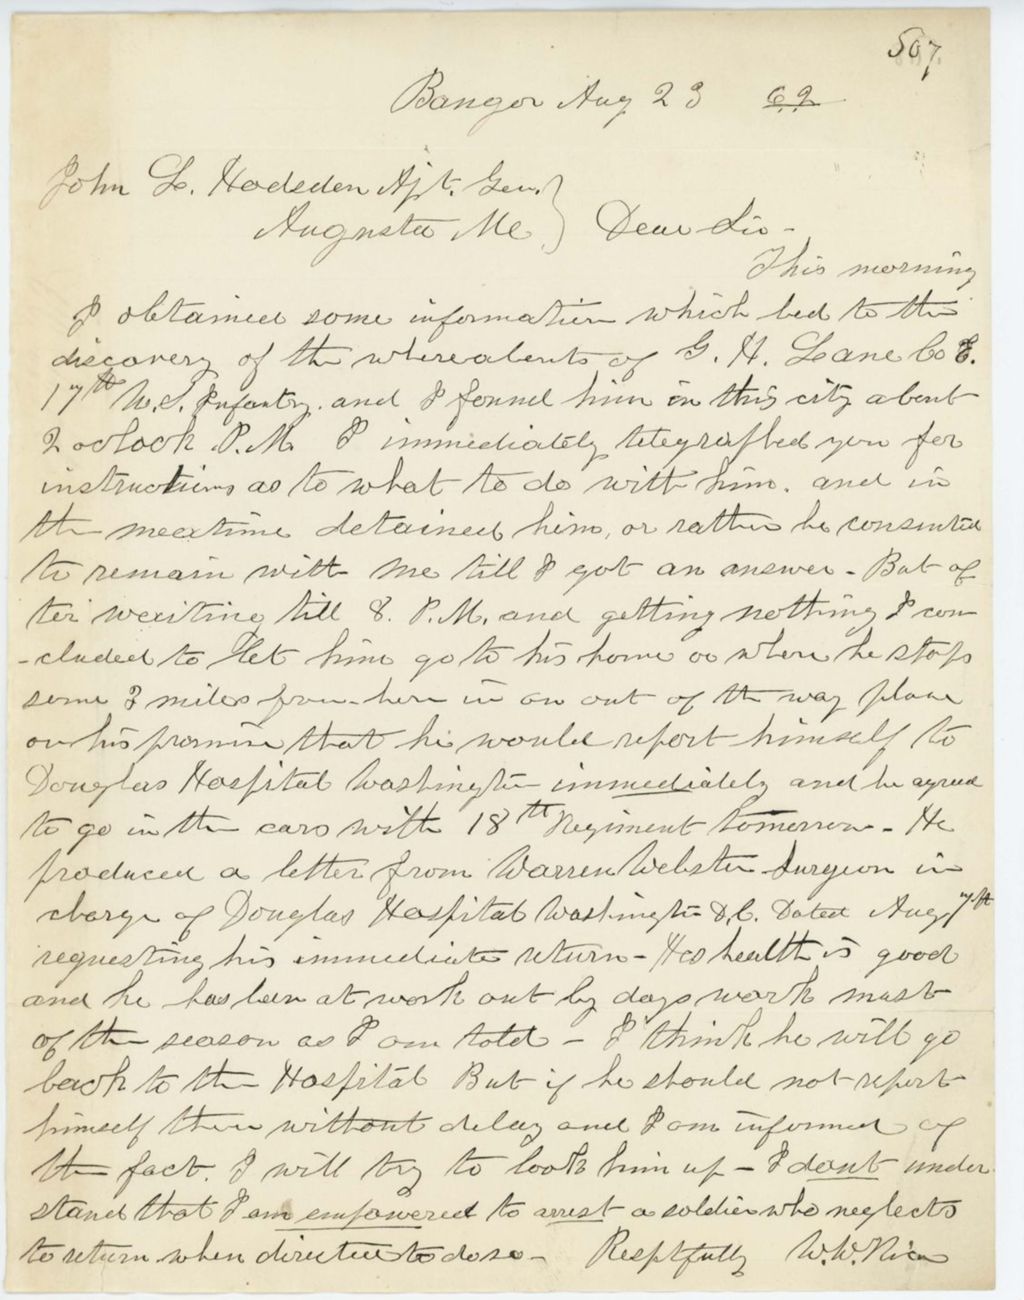 507
Bangor Aug 23 62
John L. Hodsden Ajt. Gen.
Augusta Me } Dear Sir -
This morning
I obtained some information which led to the
discovery of the whereabouts of G. H. Lane Co E.
17th U.S. Infantry. and I found him in this city about
2 oclock P.M. I immediately telegraphed you for
instructions as to what to do with him. and in
the meantime detained him, or rather he consented
to remain with me till I got an answer - But af
ter waiting till 8. P.M. and getting nothing I con
-cluded to let him go to his home or where he stops
some 3 miles from here in an out of the way place
on his promise that he would report himself to
Douglas Hospital Washington immediately and he agreed
to go in the cars with 18th Regiment tomorrow - He
produced a letter from Warren Webster Surgeon in
charge of Douglas Hospital Washington D.C. Dated Aug 7th
requesting his immediate return - His health is good
and he has been at work out by days work most
of the season as I am told - I think he will go
back to the Hospital But if he should not report
himself there without delay and I am informed of
the fact. I will try to look him up - I dont under
stand that I am empowered to arrest a soldier who neglects
to return when directed to do so - Resptfully W. W. Rice